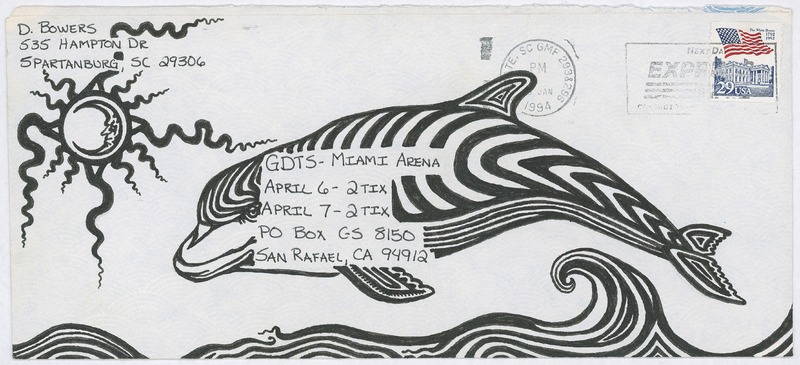 D. BOWERS
535 HAMPTON DR
SPARTANBURG, SC 29306
SC GMF 293&296
PM
JAN
1994
NEXT DA
EXPR
The White House
1792 1992
29 USA
GDTS- MIAMI ARENA
APRIL 6- 2TIX
APRIL 7- 2TIX
PO BOX GS 8150
SAN RAFAEL, CA 94912